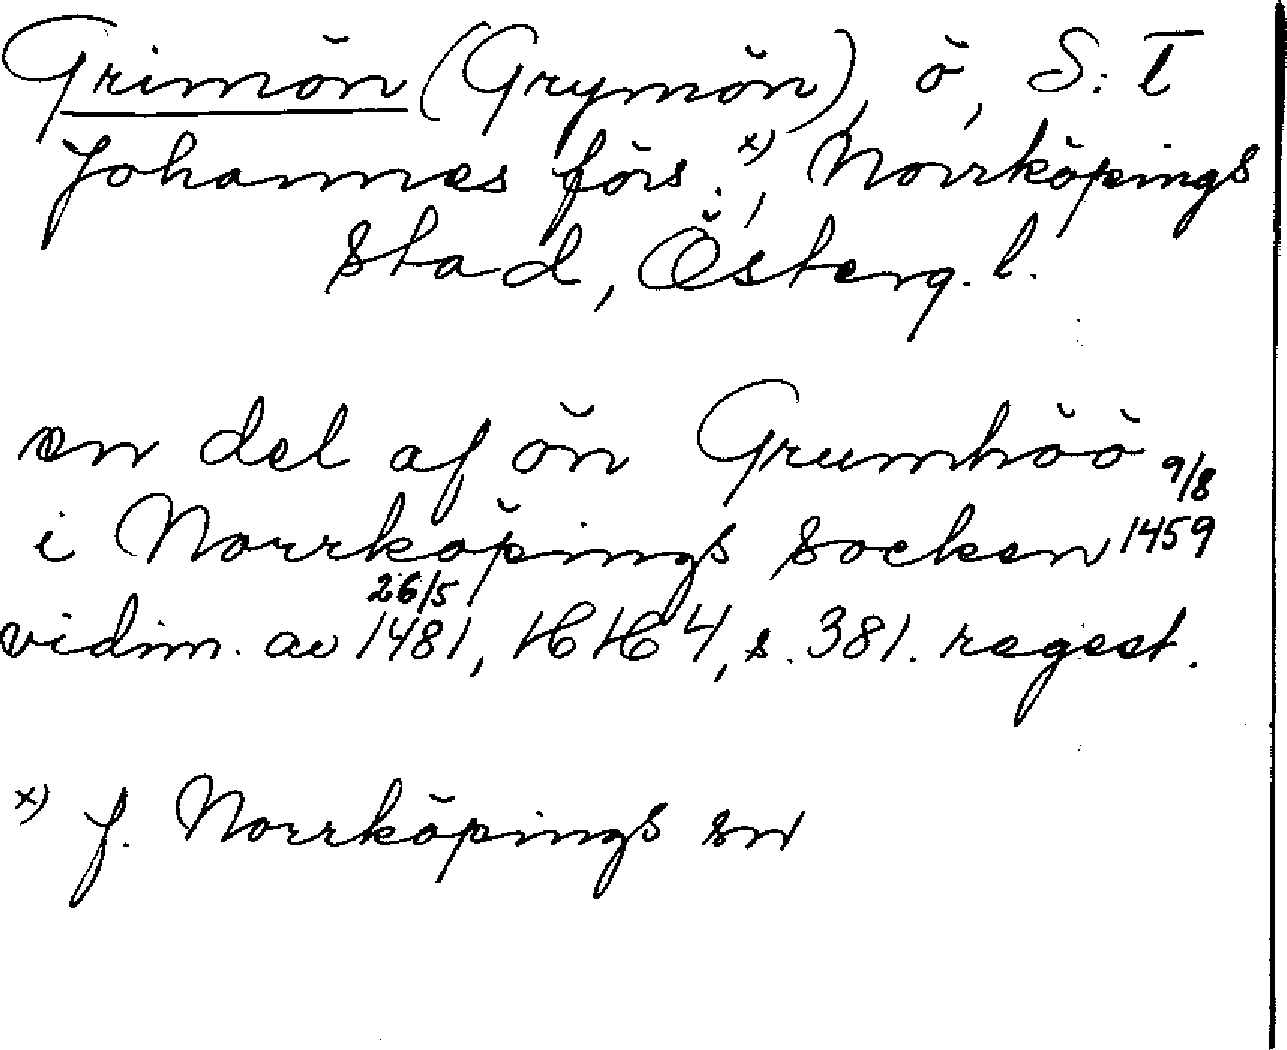 Grimön (Grymön), ö, S:t
Johannes förs.x), Norrköpings
stad, Österg. l.
en del af ön Grumhöö 9/8
i Norrköpings socken 1459
26/5
vidim. av 1481, HH 4, s. 381. regest.
x) f. Norrköpings sn